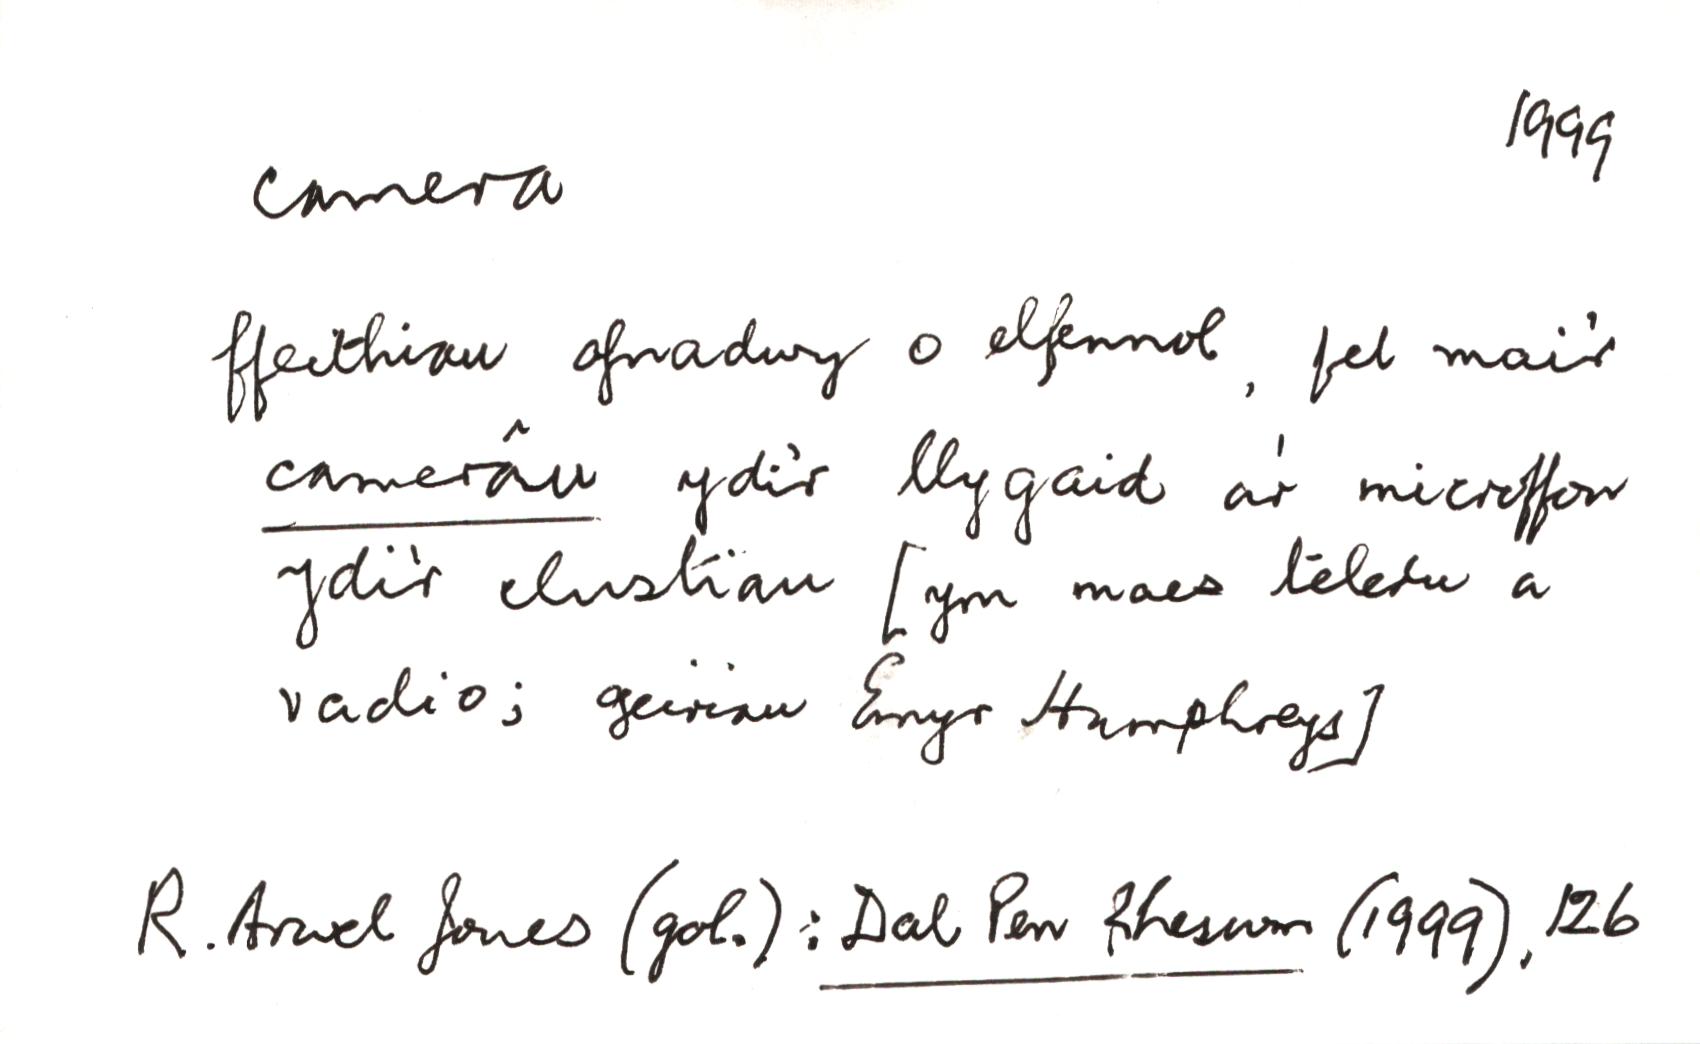 1999
camera
ffeithiau ofnadwy o elfennol, fel mai'r
camerâu ydi'r llygaid a'r microffon
ydi'r clustiau [ym maes teledu a
radio; geiriau Emyr Humphreys]
R. Arwel Jones (gol.): Dal Pen Rheswm (1999), 126